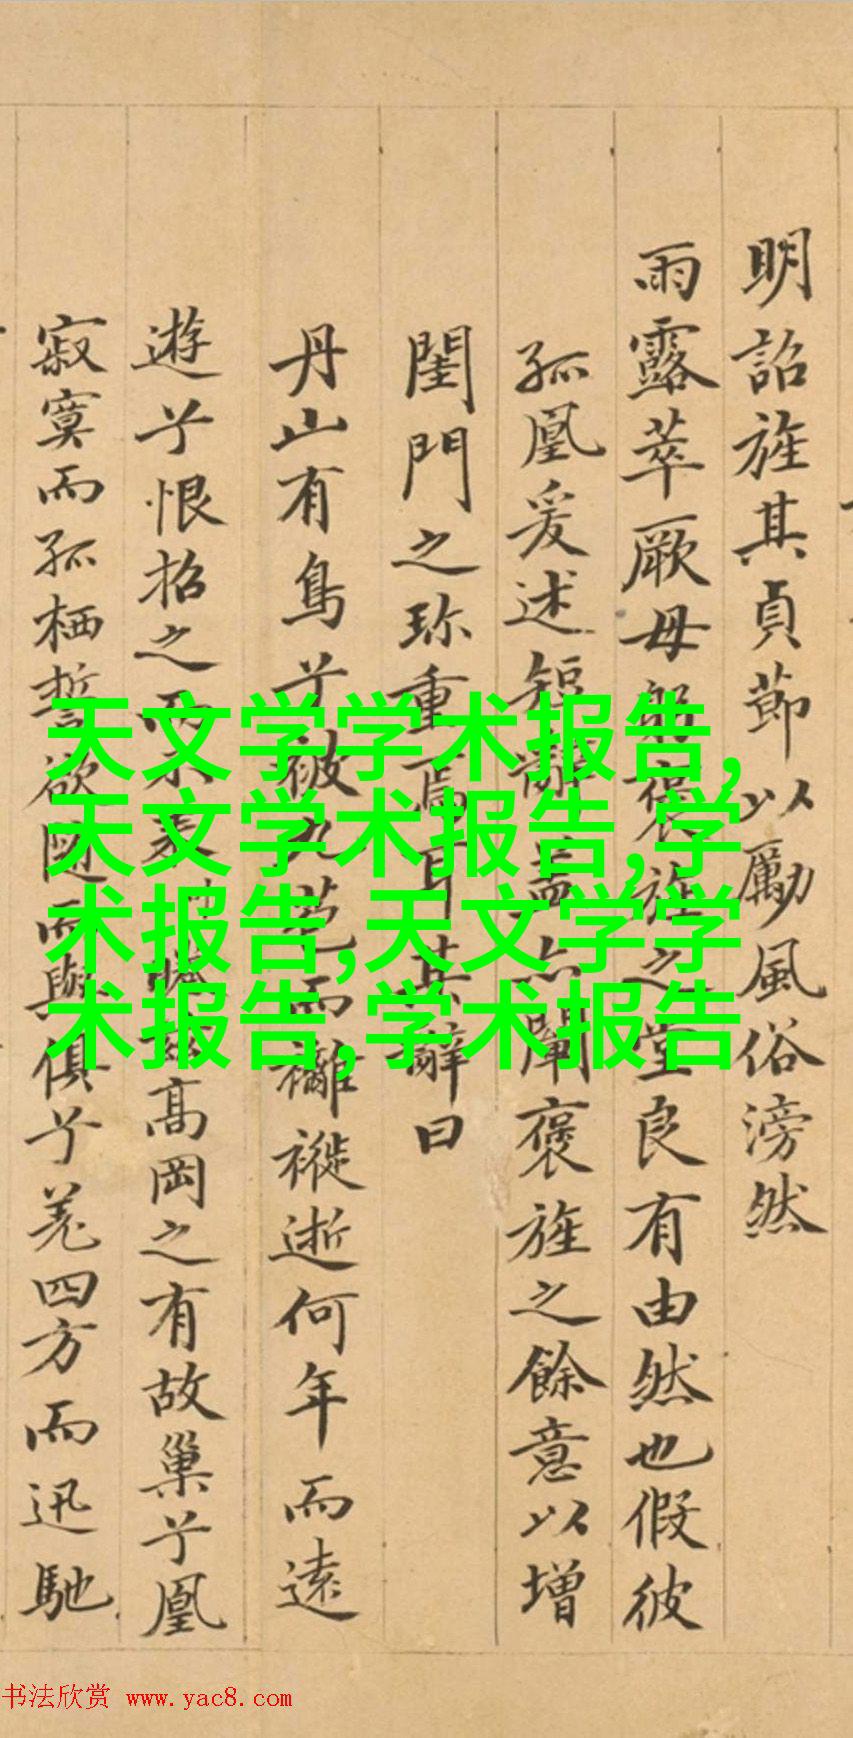 明詔旌其貞節以勵風俗滂然
雨露萃厥母躬褒旌之堂良有由然也假彼
孤凰爰述短辭蓋亦闡褒旌之餘意以增
閨門之珎重焉耳其辭曰
丹山有鳥兮被九苞而襳褷逝何年而遠
遊兮恨招之而不来 高岡之有故巢兮凰
寂寞而孤栖誓欲随而與俱兮羌四方而迅馳
天文学学术报告,
天文学术报告,学
术报告,天文学学
术报告,学术报告
书法欣赏 www.yac8.com